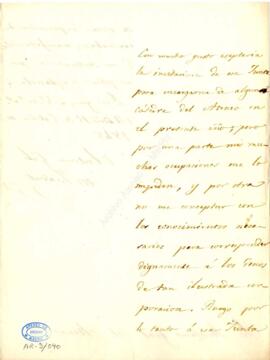 Con mucho gusto aceptaria
la invitacion de esa Junta
para encargarme de alguna
cátedra del Ateneo en
el presente año; pero
por una parte mis mu-
chas ocupaciones me lo
impiden, y por otra
no me conceptuo con
los conocimientos nece-
sarios para corresponder
dignamente á los deseos
de tan ilustrada cor-
poracion. Ruego por
lo tanto á esa Junta
AR-3/090